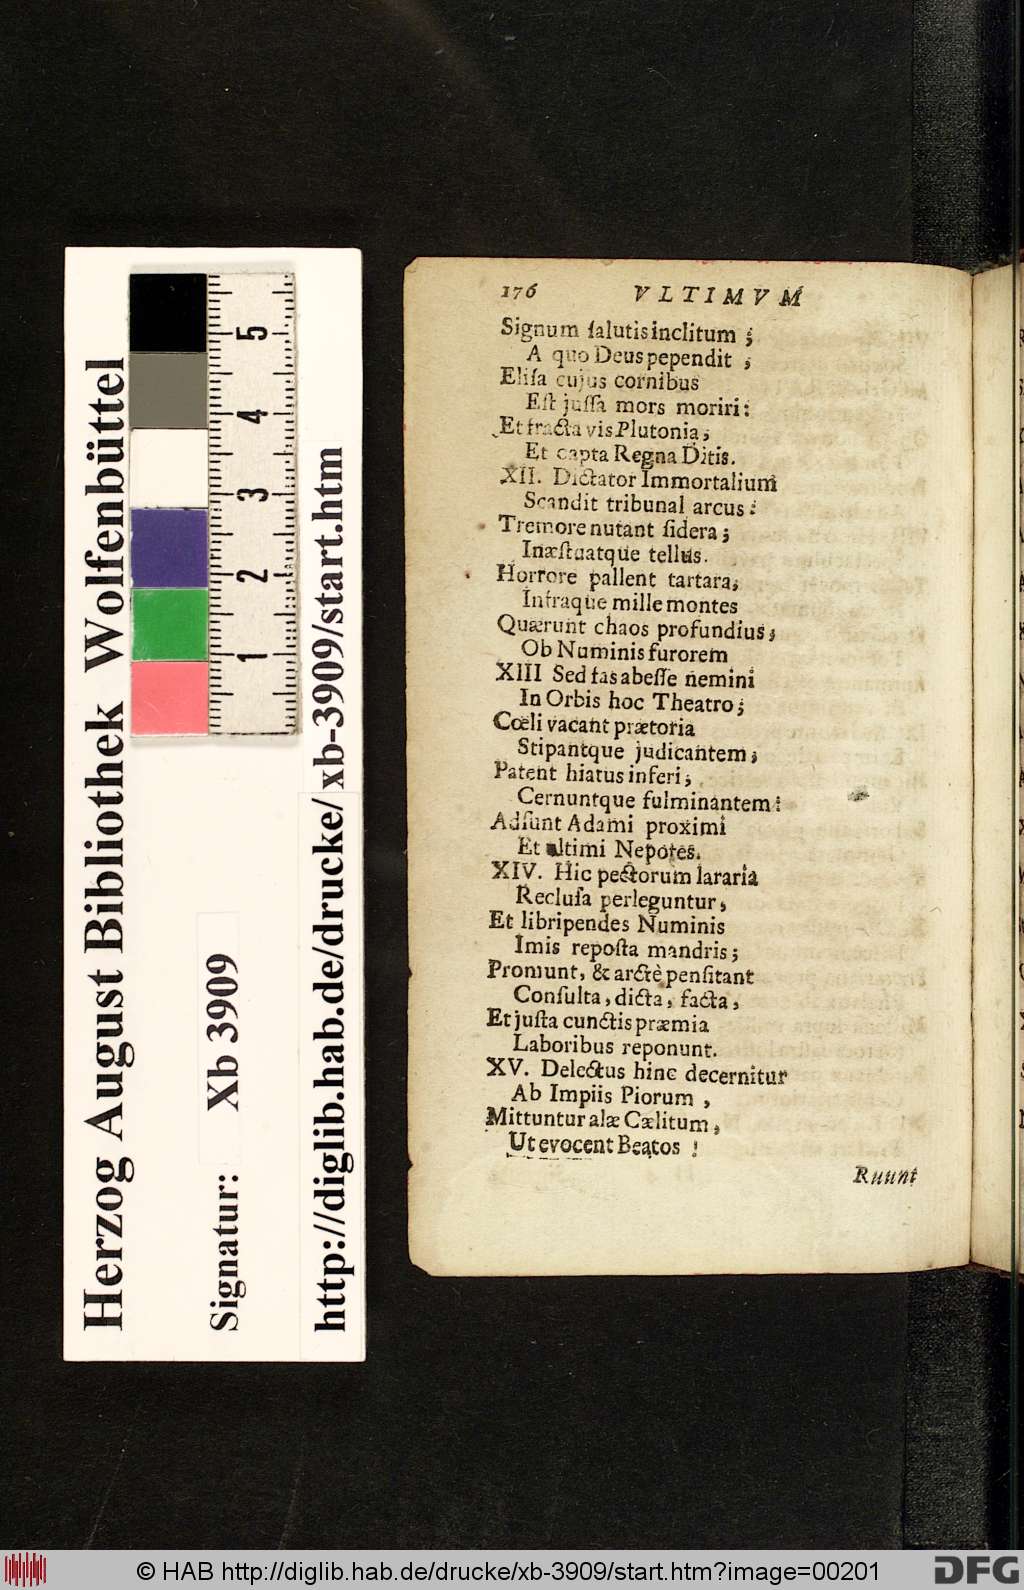 176 VLTIMVM
Signum ſalutis inclitum ;
A quo Deus pependit ;
Eliſa cujus cornibus
Eſt juſſa mors moriri:
Et fracta vis Plutonia;
Et capta Regna Ditis.
XII. Dictator Immortalium
Scandit tribunal arcus:
Tremore nutant ſidera;
Inæſtuatque tellus.
Horrore pallent tartara;
Infraque mille montes
Quærunt chaos profundius;
Ob Numinis furorem
XIII Sed fas abeſſe nemini
In Orbis hoc Theatro;
Cœli vacant prætoria
Stipantque judicantem;
Patent hiatus inferi;
Cernuntque fulminantem!
Adſunt Adami proximi
Et ultimi Nepotes.
XIV. Hic pectorum lararia
Recluſa perleguntur,
Et libripendes Numinis
Imis repoſta mandris;
Promunt, & arctè penſitant
Conſulta, dicta, facta,
Et juſta cunctis præmia
Laboribus reponunt.
XV. Delectus hinc decernitur
Ab Impiis Piorum ,
Mittuntur alæ Cælitum,
Ut evocent Beatos !
Ruunt
Herzog August Bibliothek Wolfenbüttel
Signatur: Xb 3909
http://diglib.hab.de/drucke/xb-3909/start.htm
5
4
3
2
1
© HAB http://diglib.hab.de/drucke/xb-3909/start.htm?image=00201
DFG